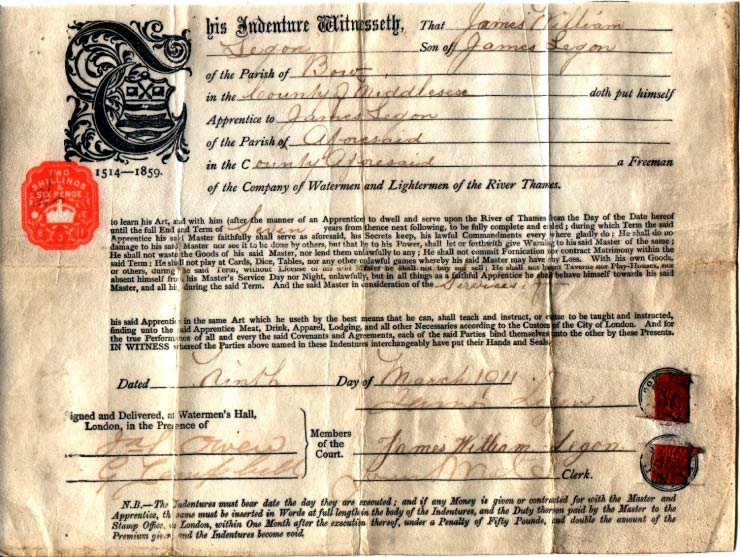 This Indenture Witnesseth, That James William
Legon Son of James Legon
of the Parish of Bow
in the County of Middlesex doth put himself
Apprentice to James Legon
of the Parish of Aforesaid
in the County Aforesaid a Freeman
1514—1859.
of the Company of Watermen and Lightermen of the River Thames.
TWO
SHILLINGS
SIX PENCE
to learn his Art, and with him (after the manner of an Apprentice) to dwell and serve upon the River of Thames from the Day of the Date hereof
until the full End and Term of Seven years from thence next following, to be fully complete and ended; during which Term the said
Apprentice his said Master faithfully shall serve as aforesaid, his Secrets keep, his lawful Commandments every where gladly do; He shall do no
damage to his said Master nor see it to be done by others, but that he to his Power, shall let or forthwith give Warning to his said Master of the same;
He shall not waste the Goods of his said Master, nor lend them unlawfully to any; He shall not commit Fornication nor contract Matrimony within the
said Term; He shall not play at Cards, Dice, Tables, nor any other unlawful games whereby his said Master may have any Loss. With his own Goods,
or others, during the said Term, without License of his said Master he shall not buy nor sell; He shall not haunt Taverns nor Play-Houses, nor
absent himself from his Master's Service Day nor Night, unlawfully, but in all things as a faithful Apprentice he shall behave himself towards his said
Master, and all his, during the said Term. And the said Master in consideration of the Services of
his said Apprentice in the same Art which he useth by the best means that he can, shall teach and instruct, or cause to be taught and instructed,
finding unto the said Apprentice Meat, Drink, Apparel, Lodging, and all other Necessaries according to the Custom of the City of London. And for
the true Performance of all and every the said Covenants and Agreements, each of the said Parties bind themselves unto the other by these Presents.
IN WITNESS whereof the Parties above named in these Indentures interchangeably have put their Hands and Seals
Dated Ninth Day of March 1911
James Legon
Signed and Delivered, at Watermen's Hall,
London, in the Presence of
Members
of the
Court.
James William Legon
Clerk.
N.B.—The Indentures must bear date the day they are executed; and if any Money is given or contracted for with the Master and
Apprentice, the same must be inserted in Words at full length in the body of the Indentures, and the Duty thereon paid by the Master to the
Stamp Office, in London, within One Month after the execution thereof, under a Penalty of Fifty Pounds, and double the amount of the
Premium given and the Indentures become void.